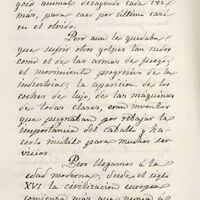 poco animal decayendo cada vez
mas, para caer por último casi
en el olvido.
Pero aun le quedaba
que sufrir otro golpes tan rudos
como el de las armas de fuego;
el movimiento progresivo de la
industria; la aparicion de los
coches de lujo, de las maquinas
de todas clases, eran inventos
que pugnaban por rebajar la
importancia del caballo y ha-
cerlo inutil para muchos ser-
vicios.
Pero llegamos a la
edad moderna; desde el siglo
XVI la civilizacion europea
comienza mas que nunca a